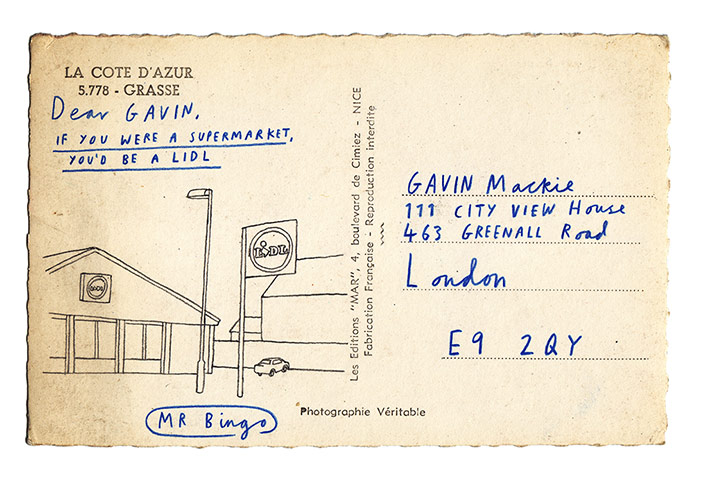 LA COTE D'AZUR
5.778 - GRASSE
Dear GAVIN,
IF YOU WERE A SUPERMARKET,
YOU'D BE A LIDL
LIDL
LIDL
MR Bingo
Les Editions "MAR", 4, boulevard de Cimiez - NICE
Fabrication Française - Reproduction interdite
Photographie Véritable
GAVIN Mackie
111 CITY VIEW House
463 GREENALL Road
London
E9 2QY